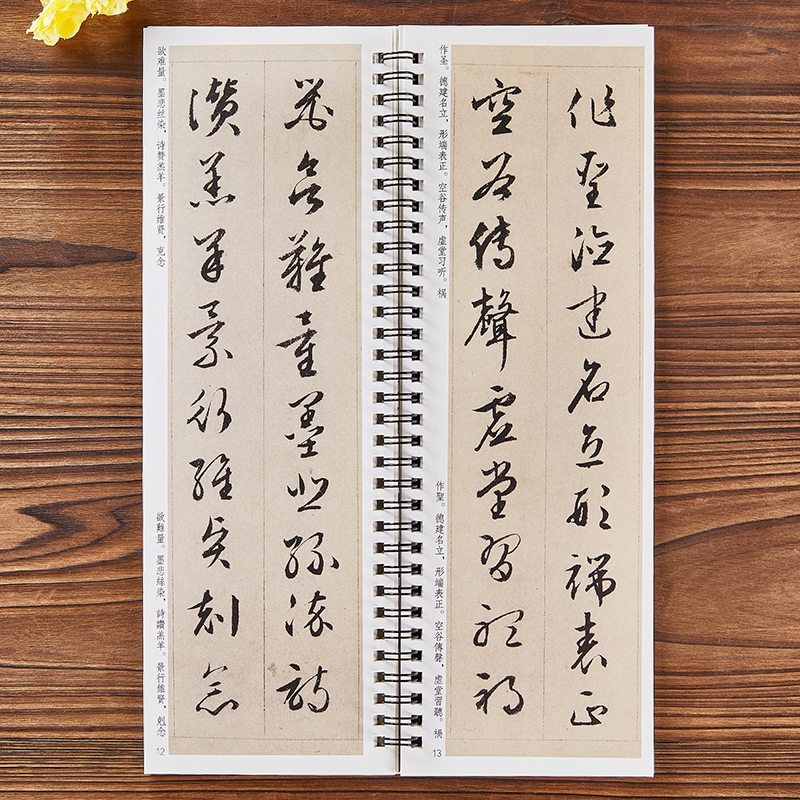 器欲難量墨悲絲染詩
讚羔羊景行維賢剋念
欲难量。墨悲丝染，诗赞羔羊。景行维贤，克念
欲難量。墨悲絲染，詩讚羔羊。景行維賢，剋念
12
作聖德建名立形端表正
空谷傳聲虛堂習聽禍
作圣。德建名立，形端表正。空谷传声，虚堂习听。祸
作聖。德建名立，形端表正。空谷傳聲，虚堂習聽。禍
13